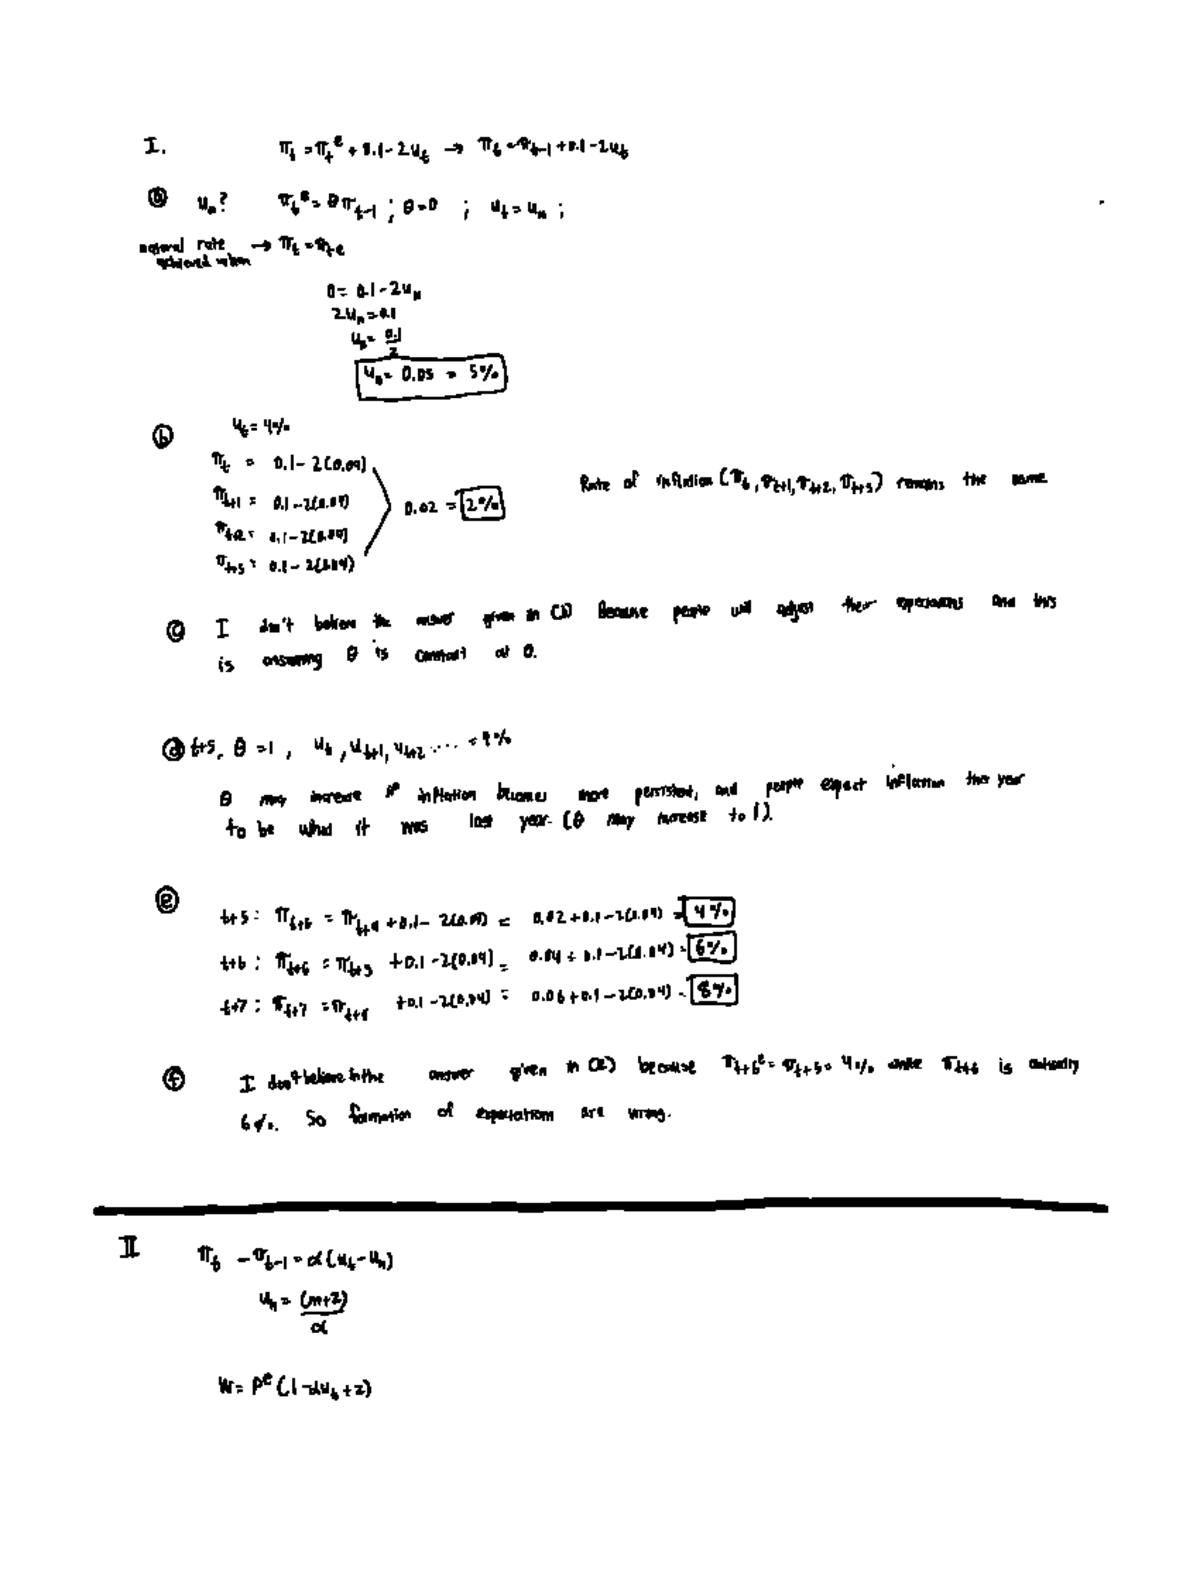 I. π_t = π_t^e + 0.1 - 2u_t → π_t = π_t-1 + 0.1 - 2u_t
ⓐ u_n? π_t^e = θπ_t-1 ; θ=0 ; u_t = u_n ;
natural rate → π_t = π_te
achieved when
0 = 0.1 - 2u_n
2u_n = 0.1
u_n = 0.1/2
u_n = 0.05 = 5%
ⓑ u_t = 4%
π_t = 0.1 - 2(0.04)
π_t+1 = 0.1 - 2(0.04)
0.02 = 2% Rate of inflation (π_t, π_t+1, π_t+2, π_t+5) remains the same
π_t+2 = 0.1 - 2(0.04)
π_t+5 = 0.1 - 2(0.04)
ⓒ I don't believe the answer given in (b) Because people will adjust their expectations and this
is assuming θ is constant at 0.
ⓓ t+5, θ = 1, u_t, u_t+1, u_t+2 ..... = 4%
θ may increase if inflation becomes more persistent, and people expect inflation this year
to be what it was last year. (θ may increase to 1).
ⓔ t+5: = + 0.1 - 2(0.04) = 0.02 + 0.1 - 2(0.04) = 4%
t+6: π_t+6 = π_t+5 + 0.1 - 2(0.04) = 0.04 + 0.1 - 2(0.04) = 6%
t+7: π_t+7 = π_t+6 + 0.1 - 2(0.04) = 0.06 + 0.1 - 2(0.04) = 8%
ⓕ I don't believe in the answer given in (e) because π_t+6^e = π_t+5 = 4% while π_t+6 is actually
6%. So formation of expectations are wrong.
II π_t - π_t-1 = α(u_t - u_n)
u_n = (m+z)/α
W = P^e (1 - αu_t + z)